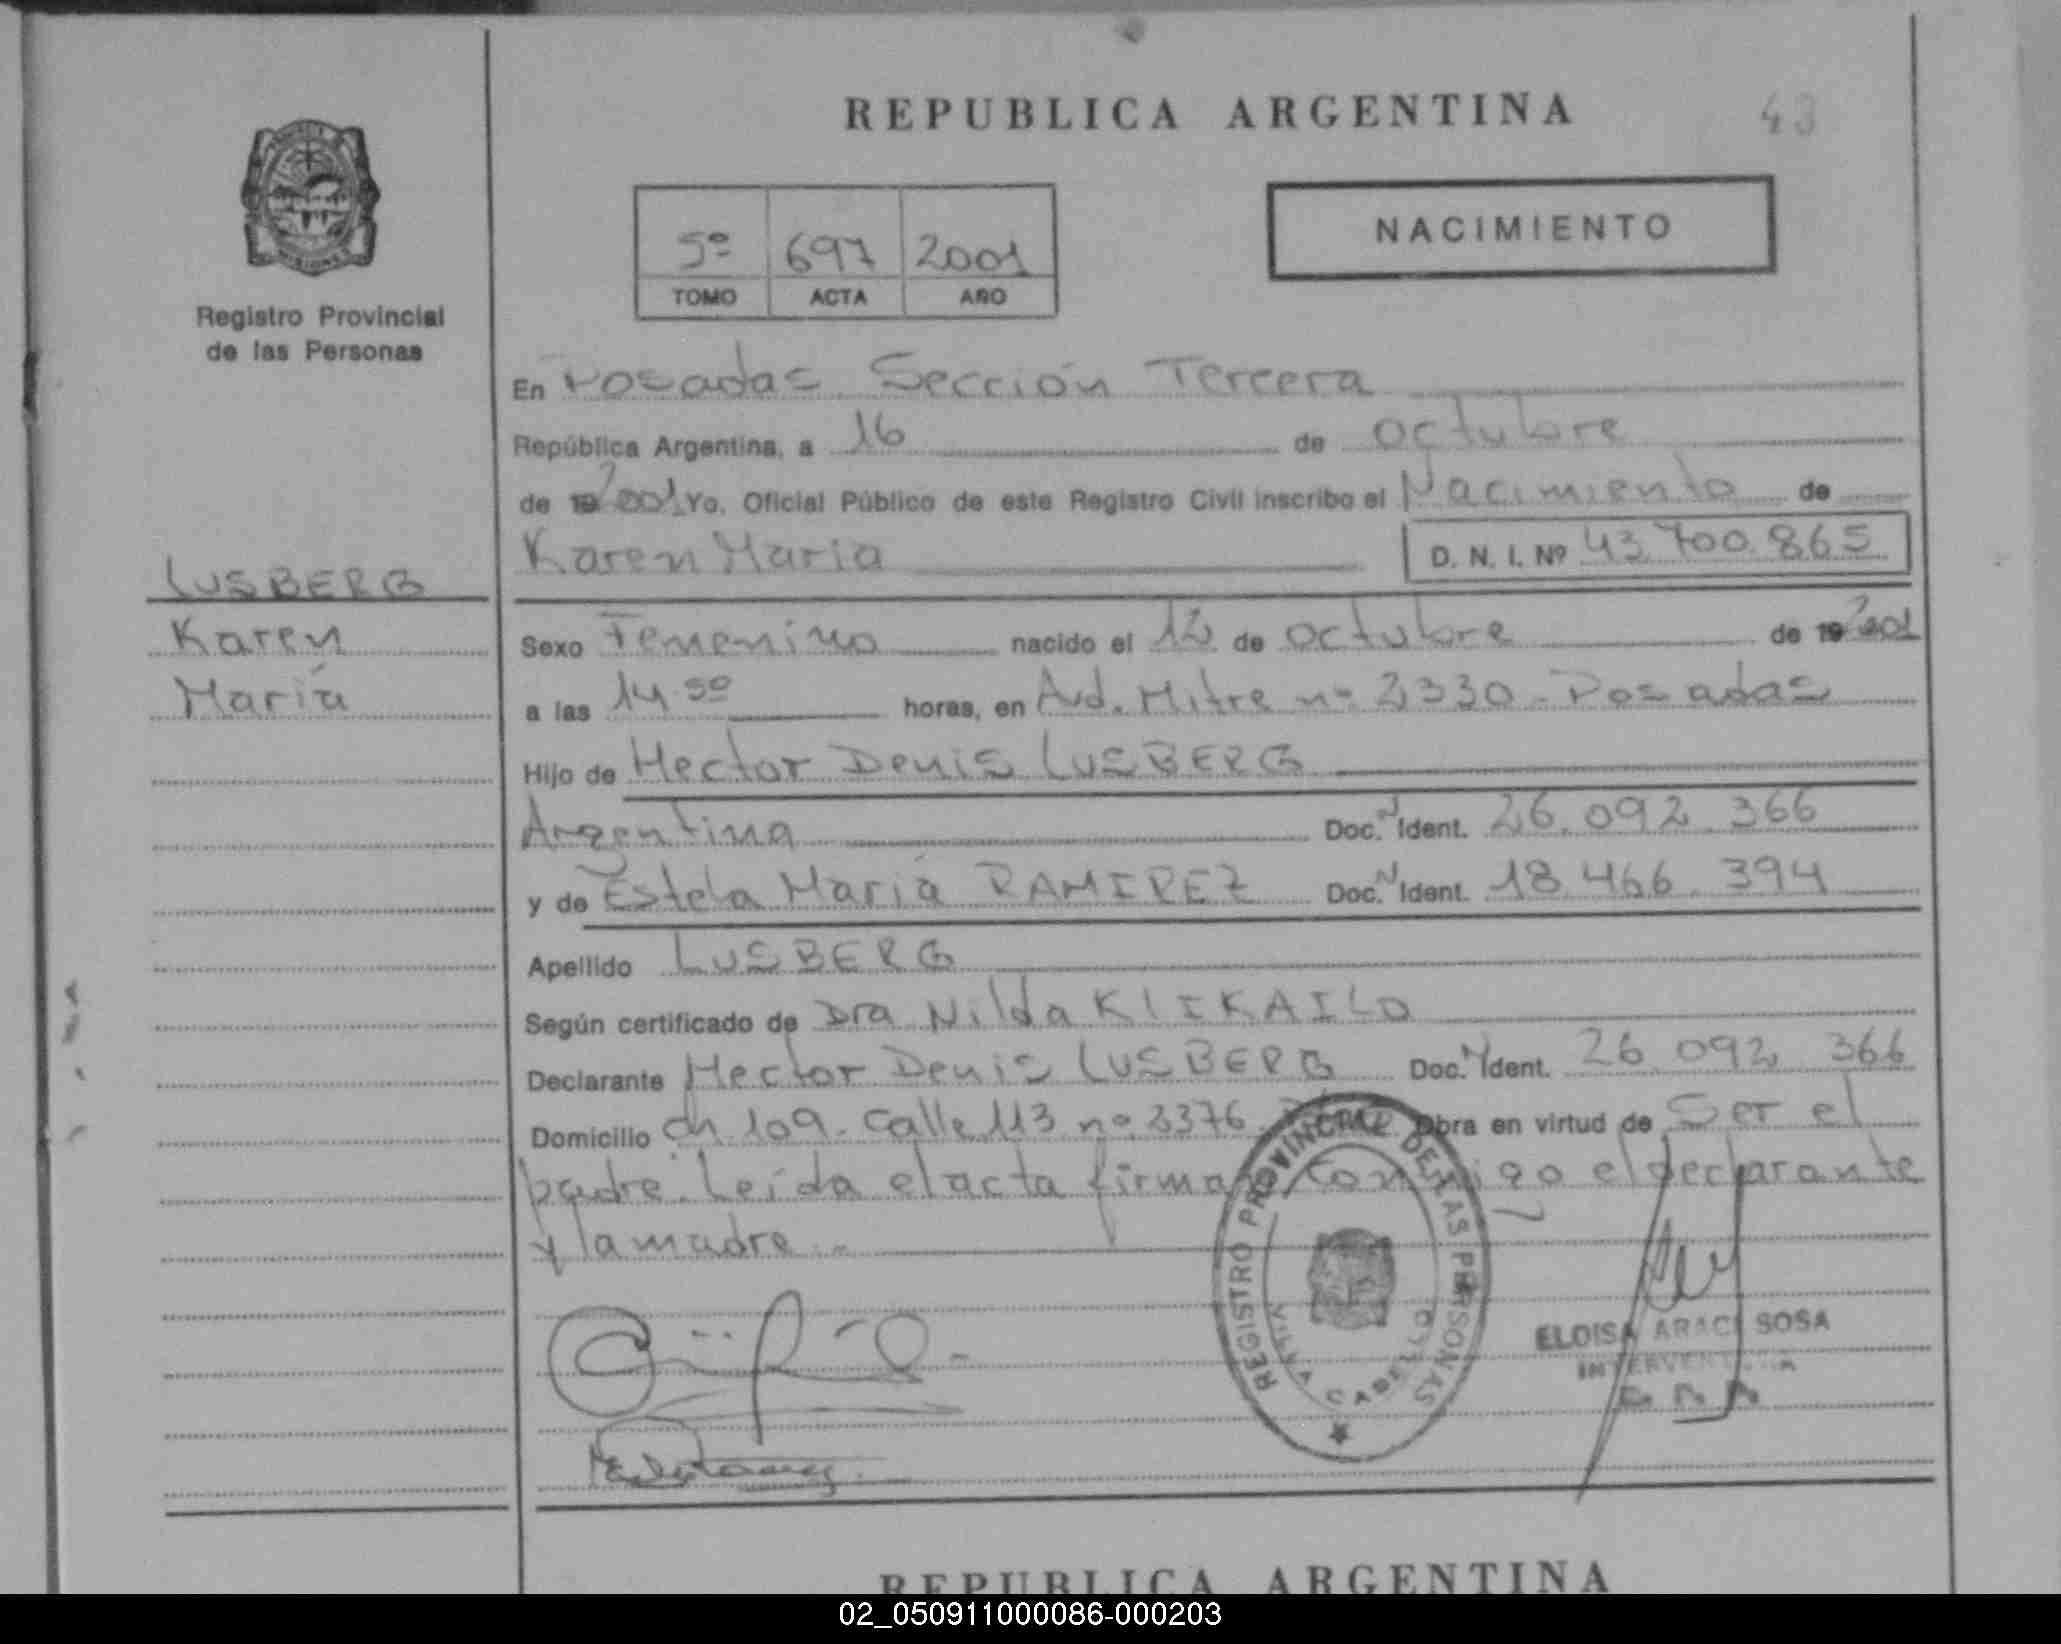 REPUBLICA ARGENTINA
43
NACIMIENTO
5º 697 2001
TOMO ACTA AÑO
Registro Provincial
de las Personas
En Posadas Sección Tercera
República Argentina, a 16 de octubre
de 19 2001 Yo, Oficial Público de este Registro Civil inscribo el Nacimiento de
Karen Maria D. N. I. Nº 43.700.865
LUSBERG
Karen
María
Sexo Femenino nacido el 12 de octubre de 19 2001
a las 14.50 horas, en Avd. Mitre nº 2330 - Posadas
Hijo de Hector Denis LUSBERG
Argentina Doc. N Ident. 26.092.366
y de Estela María RAMIREZ Doc. N Ident. 18.466.394
Apellido LUSBERG
Según certificado de Dra Nilda KLIKAILO
Declarante Hector Denis LUSBERG Doc. N Ident. 26.092.366
Domicilio ch 109 - Calle 113 nº 3376 Obra en virtud de Ser el
padre. Leída el acta firman conmigo el declarante
y la madre.-
REGISTRO PROVINCIAL DE LAS PERSONAS
VILLA CABELLO
ELOISA ARACI SOSA
REPUBLICA ARGENTINA
02_050911000086-000203